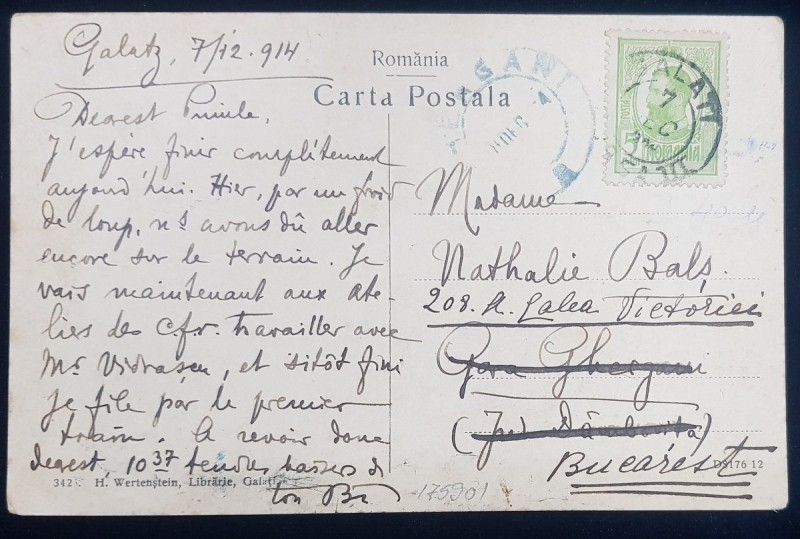 Galatz, 7/12.914
Dearest Puiule,
J'espère finir complètement
aujourd'hui. Hier, par un froid
de loup, ns avons dû aller
encore sur le terrain. Je
vais maintenant aux ate-
liers des C.f.r. travailler avec
Mr Vidrașcu, et sitôt fini
je file par le premier
train. A revoir donc
dearest, 1037 tendres baisers de
ton
România
Carta Postala
GALATI
7
5 ROMANIA
POSTA
Madame
Nathalie Balș
208. A. Calea Victoriei
Gara Gheergani
(Jud. Dâmbovița)
Bucarest
342. H. Wertenstein, Librărie, Galați
175901
DS176 12